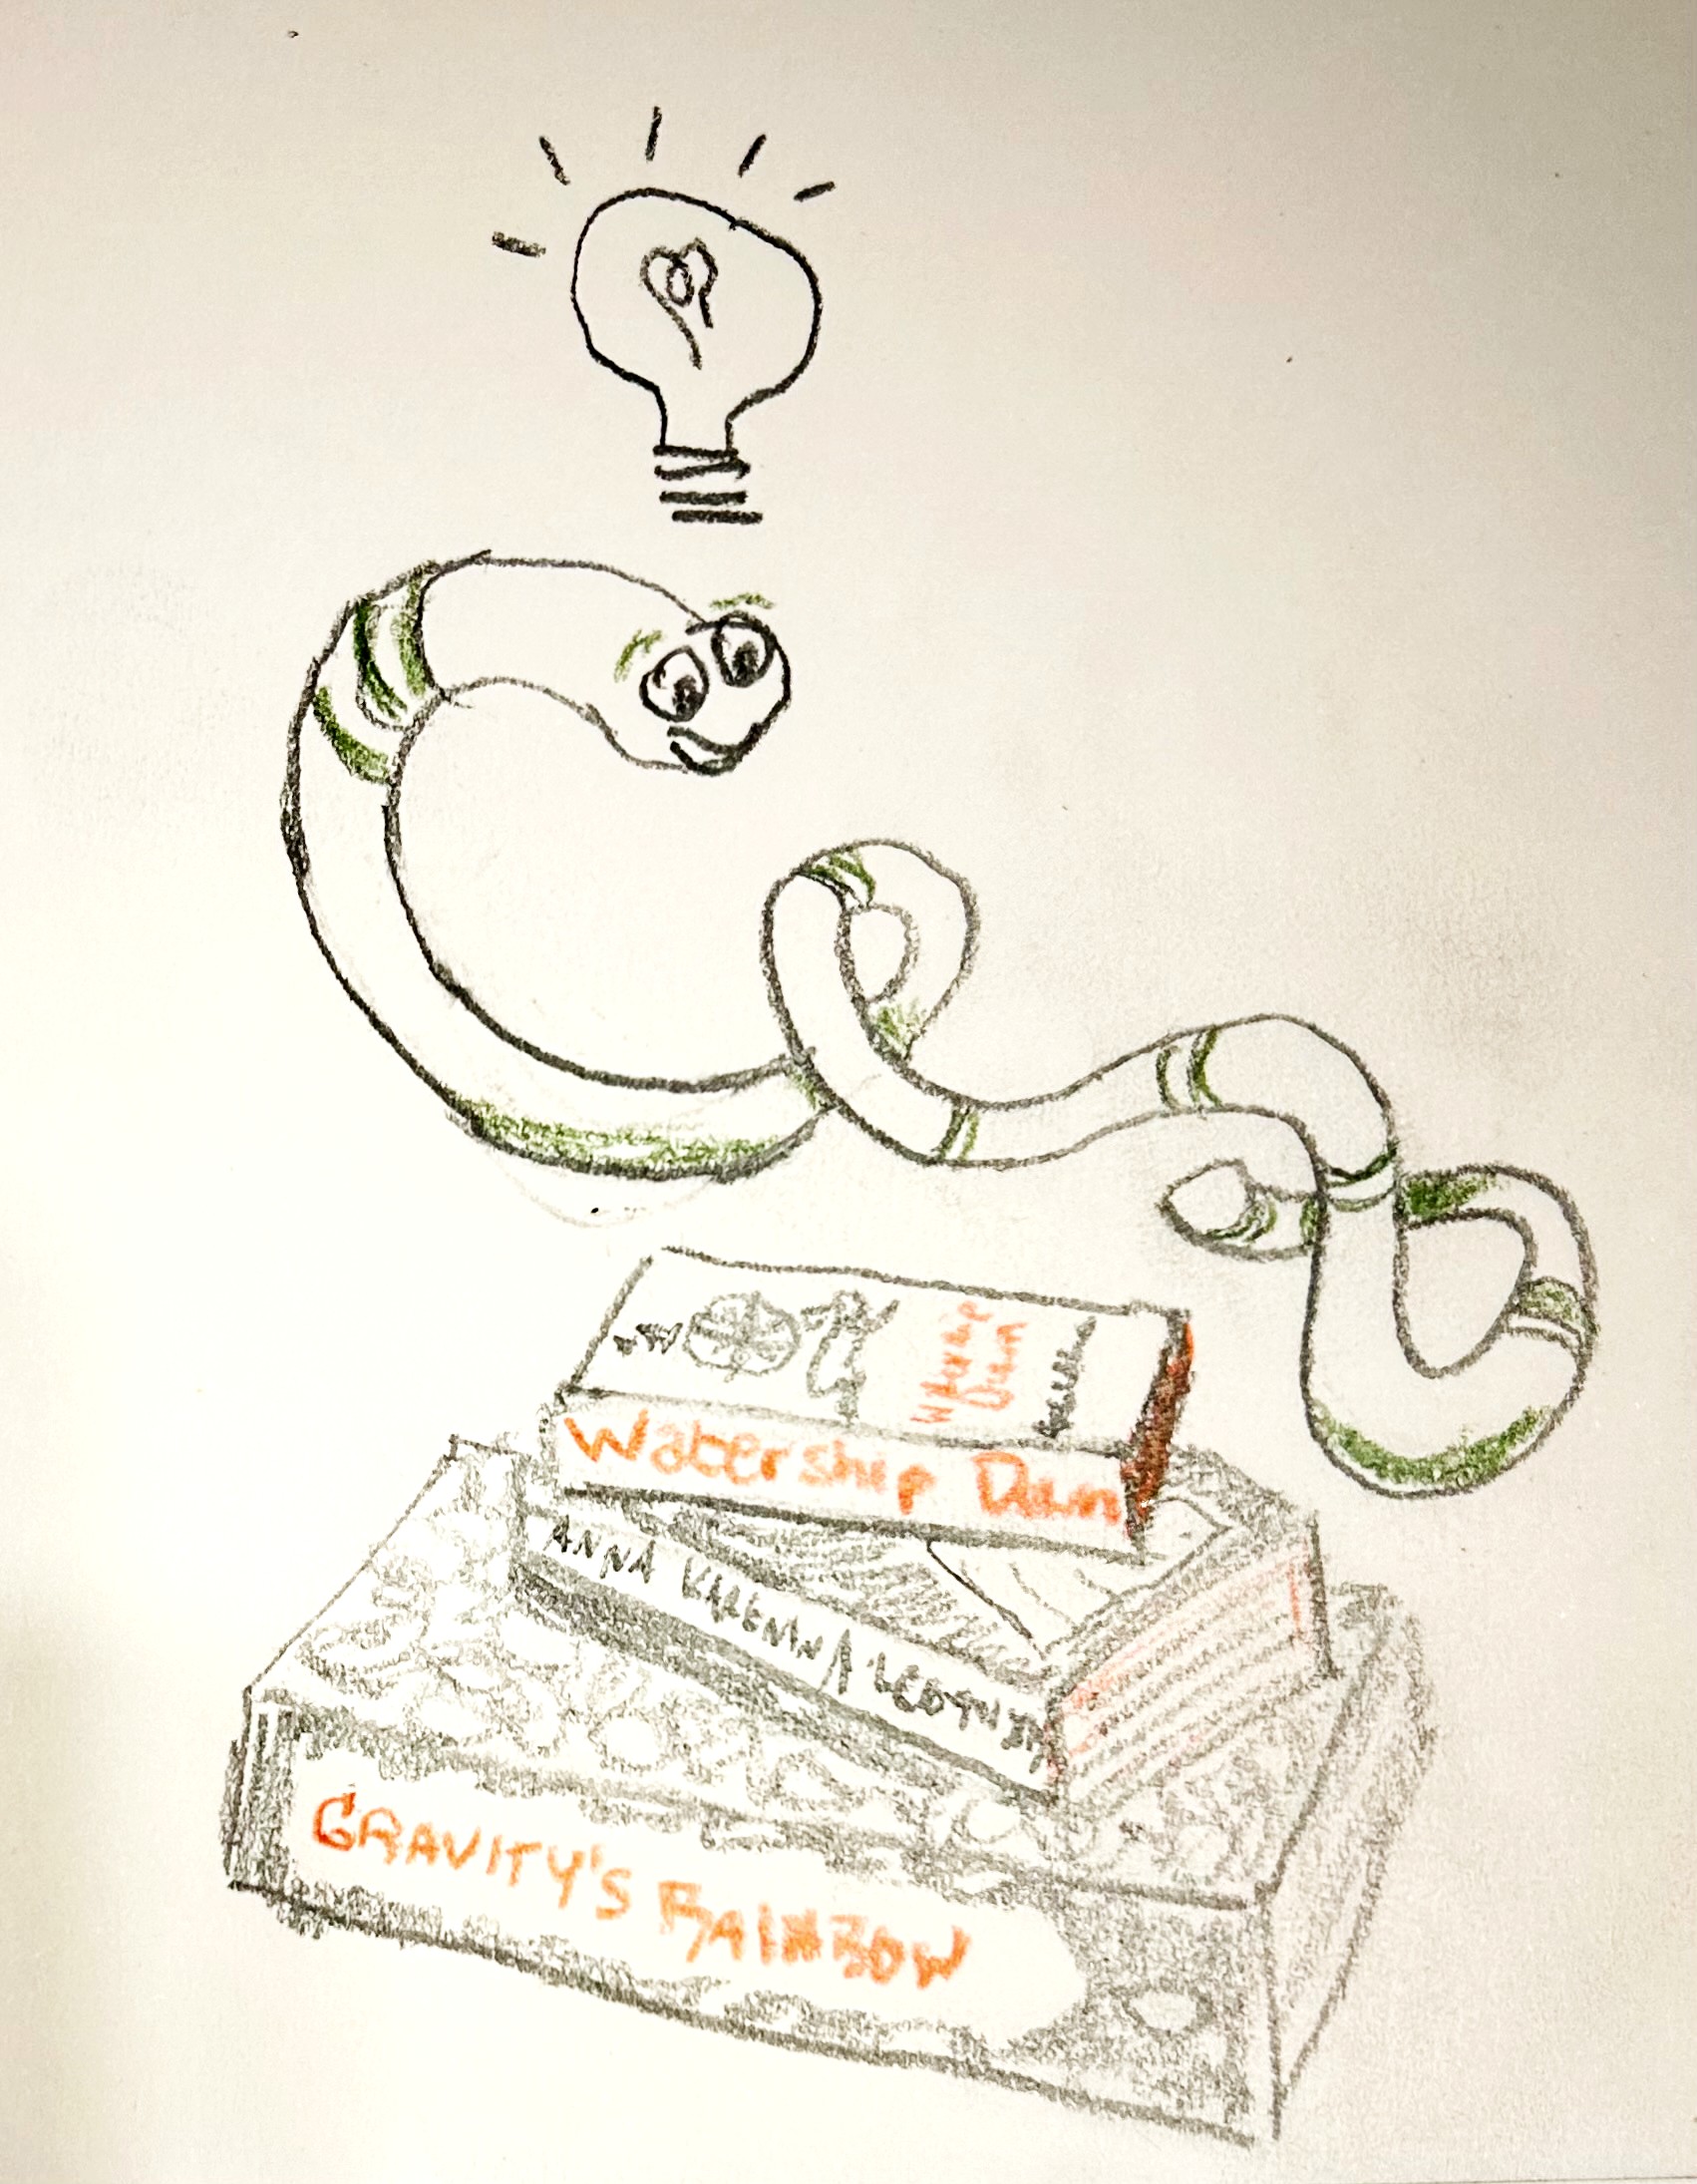 Watership
Down
Watership Down
ANNA KARENINA LEO TOLSTOY
GRAVITY'S RAINBOW